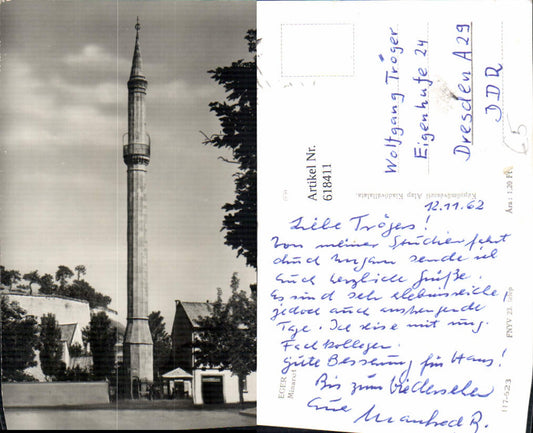 Wolfgang Tröger
Eigenhufe 24
Dresden A29
DDR
65
Artikel Nr.
618411
Képzőművészeti Alap Kiadóvállalata
Ára: 1.20 Ft
12.11.62
Liebe Trögers!
Von meiner Studienfahrt
durch Ungarn sende ich
Euch herzliche Grüße.
Es sind sehr erlebnisreiche,
jedoch auch anstrengende
Tage. Ich reise mit ung.
Fachkollegen.
Gute Besserung für Hans!
Bis zum Wiedersehen
Euer Manfred R.
EGER
Minaret
FNYV 23.
117-623